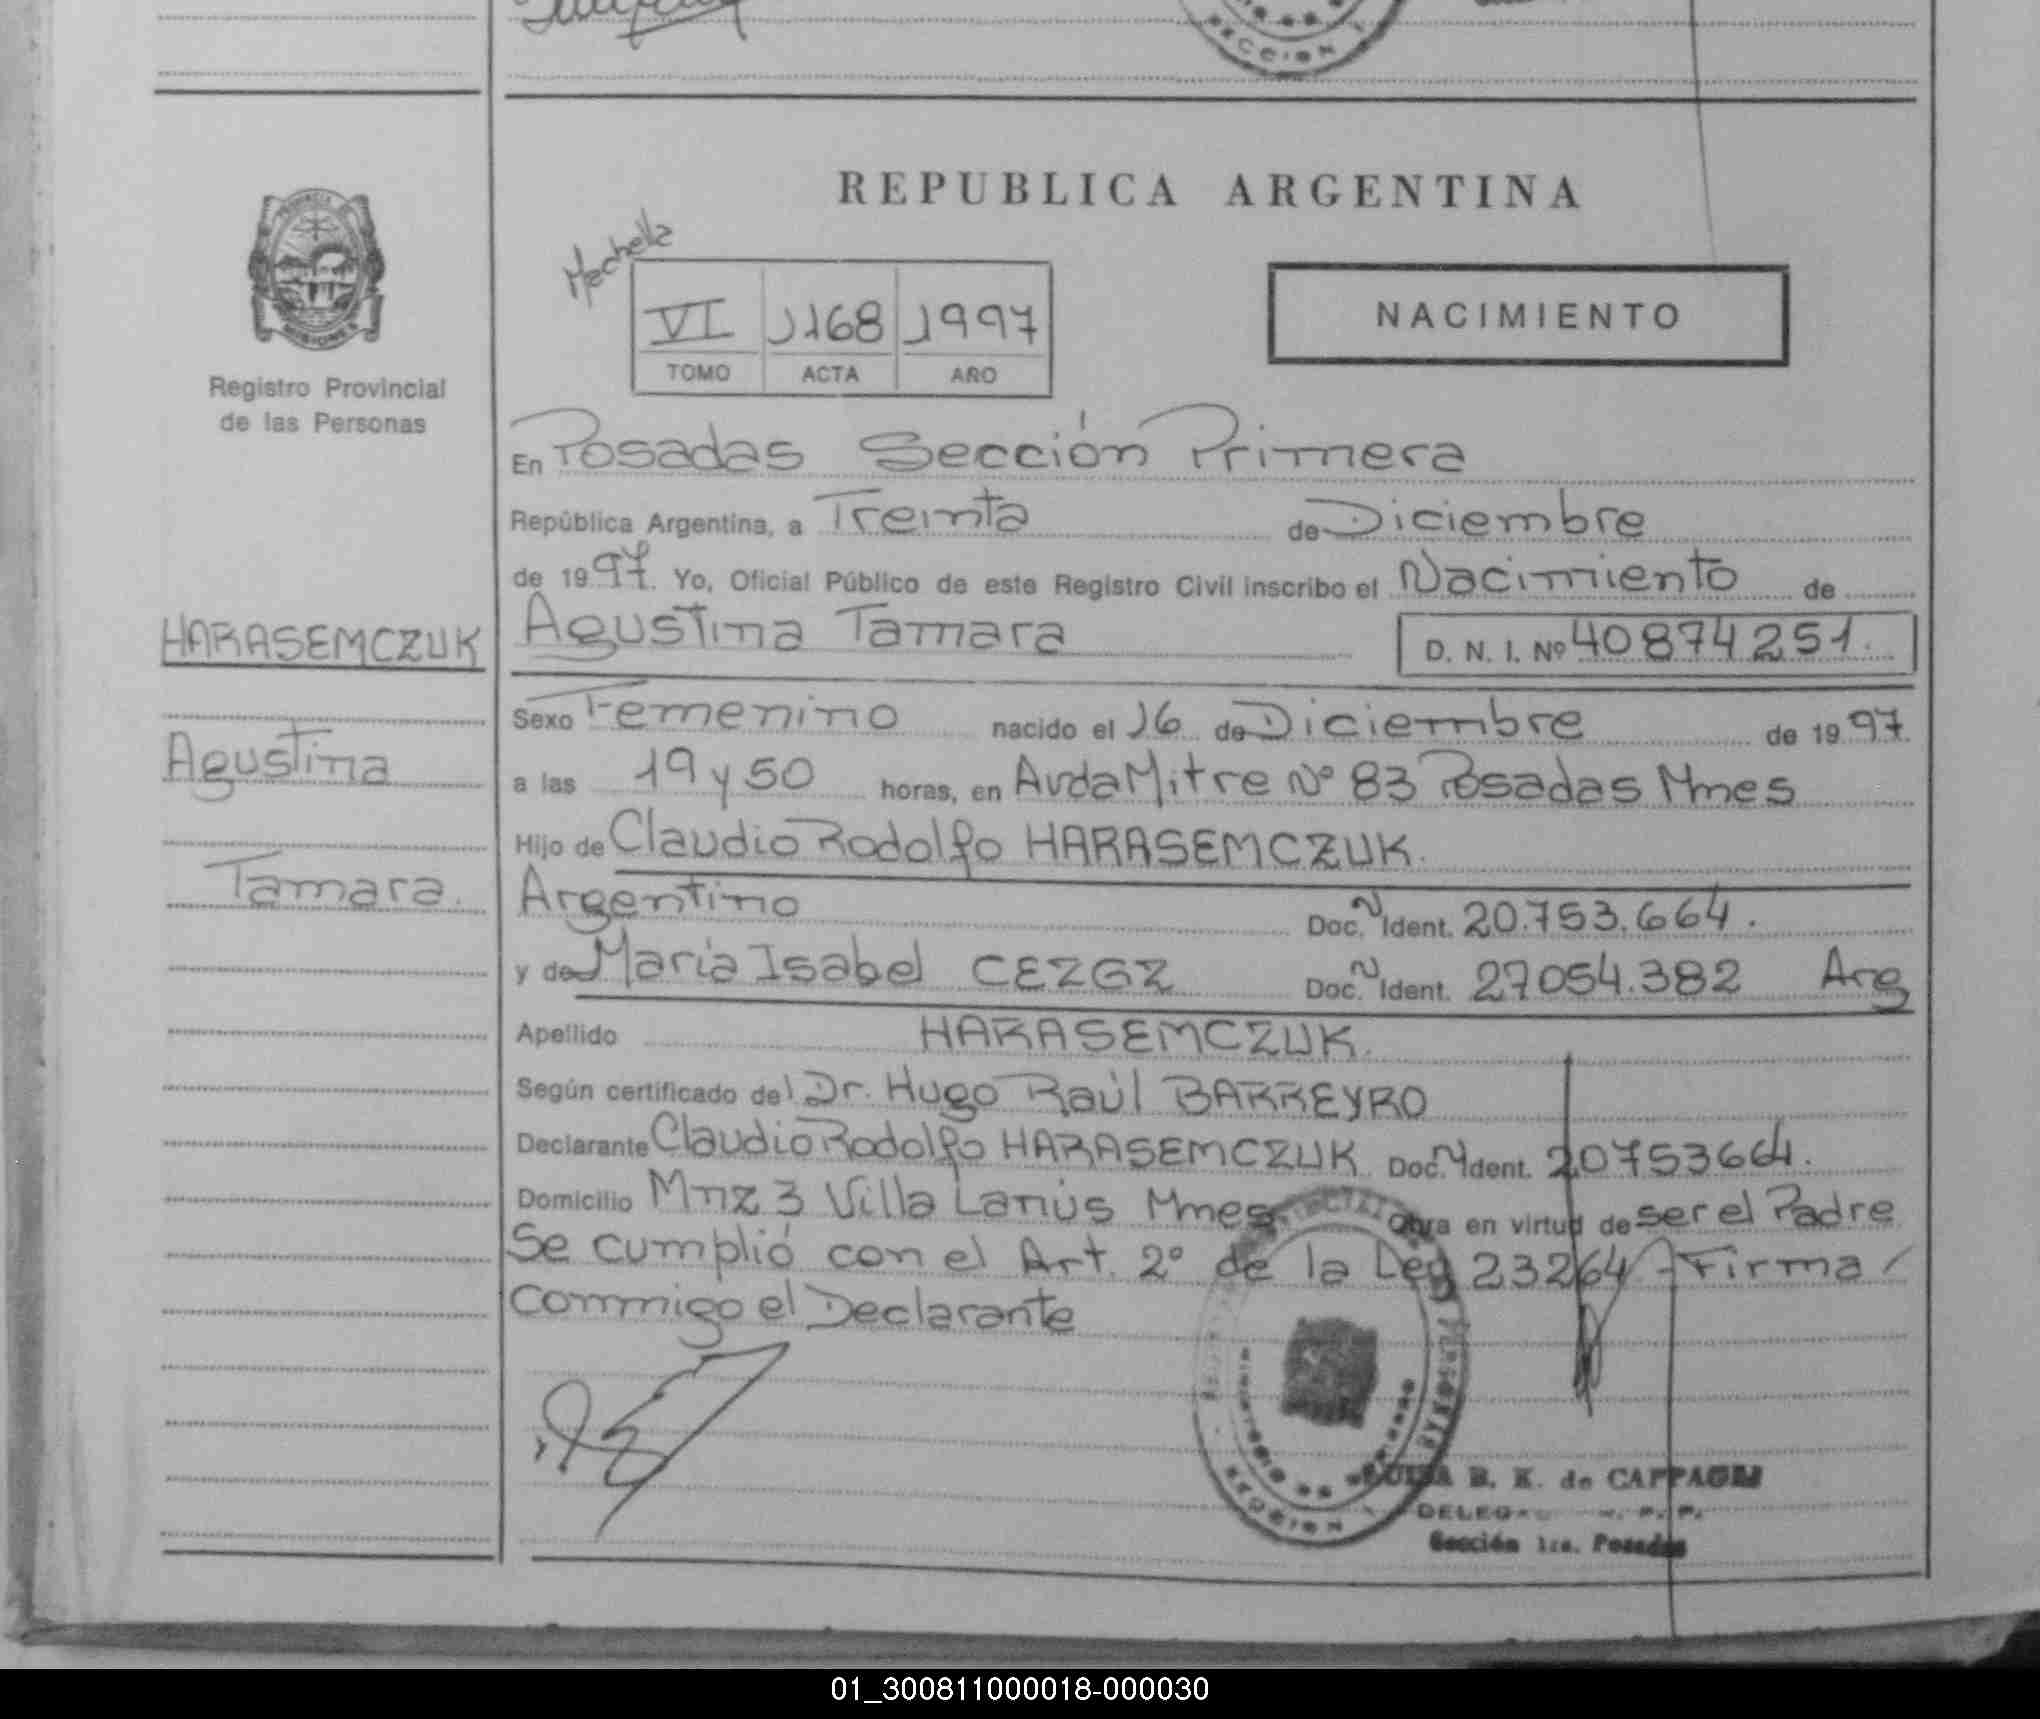 SECCION 1
REPUBLICA ARGENTINA
Mechella
VI 1168 1997
TOMO ACTA AÑO
NACIMIENTO
PROVINCIA DE
MISIONES
Registro Provincial
de las Personas
En Posadas Sección Primera
República Argentina, a Treinta de Diciembre
de 1997. Yo, Oficial Público de este Registro Civil inscribo el Nacimiento de
HARASEMCZUK
Agustina Tamara D. N. I. Nº 40874251.
Sexo Femenino nacido el 16 de Diciembre de 1997.
Agustina
a las 19 y 50 horas, en Avda Mitre Nº 83 Posadas Mnes
Hijo de Claudio Rodolfo HARASEMCZUK.
Tamara.
Argentino Doc. N Ident. 20.753.664.
y de María Isabel CEZGZ Doc. N Ident. 27054.382 Arg
Apellido HARASEMCZUK.
Según certificado del Dr. Hugo Raúl BARREYRO
Declarante Claudio Rodolfo HARASEMCZUK Doc. N Ident. 20753664.
Domicilio Mnz 3 Villa Lanús Mnes Obra en virtud de ser el Padre
Se cumplió con el Art. 2º de la Ley 23264 - Firma
Conmigo el Declarante
SECCION 1
B. K. de CAPPAGLI
Sección 1ra. Posadas
01_300811000018-000030